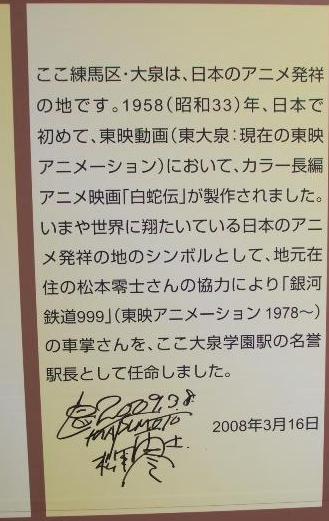 ここ練馬区・大泉は、日本のアニメ発祥
の地です。1958(昭和33)年、日本で
初めて、東映動画(東大泉:現在の東映
アニメーション)において、カラー長編
アニメ映画「白蛇伝」が製作されました。
いまや世界に翔たいている日本のアニ
メ発祥の地のシンボルとして、地元在
住の松本零士さんの協力により「銀河
鉄道999」(東映アニメーション 1978〜)
の車掌さんを、ここ大泉学園駅の名誉
駅長として任命しました。
2008年3月16日